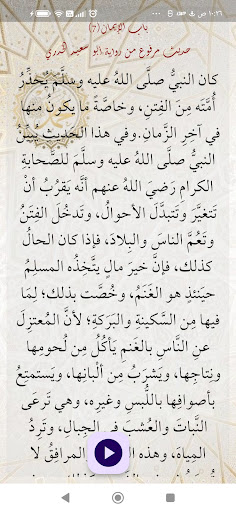 ١٠:٢٦ ص
باب الإيمان(7)
حديث مرفوع من رواية ابو سعيد الخدري
كان النبيُّ صلَّى اللهُ عليه وسلَّمَ يُحذِّرُ
أُمَّتَه مِنَ الفِتنِ، وخاصَّةً ما يكونُ منها
في آخِرِ الزَّمانِ.وفي هذا الحديثِ يُبيِّنُ
النبيُّ صلَّى اللهُ عليه وسلَّمَ للصَّحابةِ
الكرامِ رَضيَ اللهُ عنهم أنَّه يَقرُبُ أنْ
تَتغيَّرَ وتَتبدَّلَ الأحوالُ، وتَدخُلَ الفِتَنُ
وتَعُمَّ الناسَ والبِلادَ، فإذا كان الحالُ
كذلك، فإنَّ خيرَ مالٍ يتَّخِذُه المسلِمُ
حينَئذٍ هو الغَنَمُ، وخُصَّت بذلك؛ لِمَا
فيها مِن السَّكينةِ والبَرَكةِ؛ لأنَّ المُعتزِلَ
عنِ النَّاسِ بالغَنمِ يَأكُلُ مِن لُحومِها
ونِتاجِها، ويَشرَبُ مِن ألْبانِها، ويَستمتِعُ
بأصوافِها باللُّبسِ وغيرِه، وهي تَرعَى
النَّباتَ والعُشبَ في الجِبالِ، وتَرِدُ
المِياهَ، وهذه المرافقُ لا